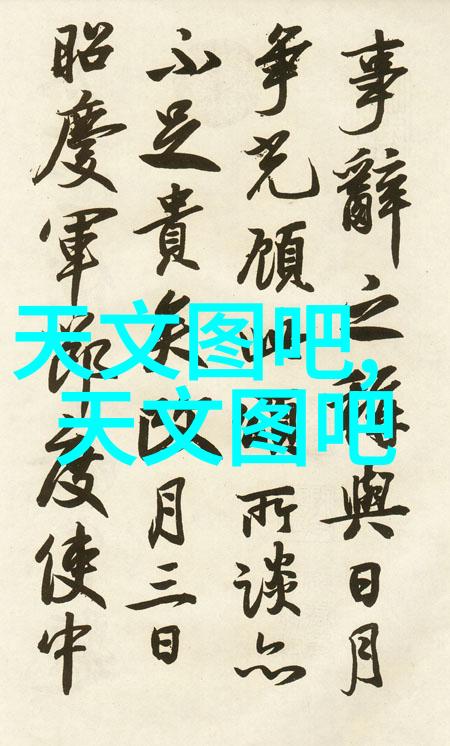 事辭之與日月
爭光顧此圖所談亦
不足貴矣月三日
昭慶軍節度使中
天文图吧,
天文图吧